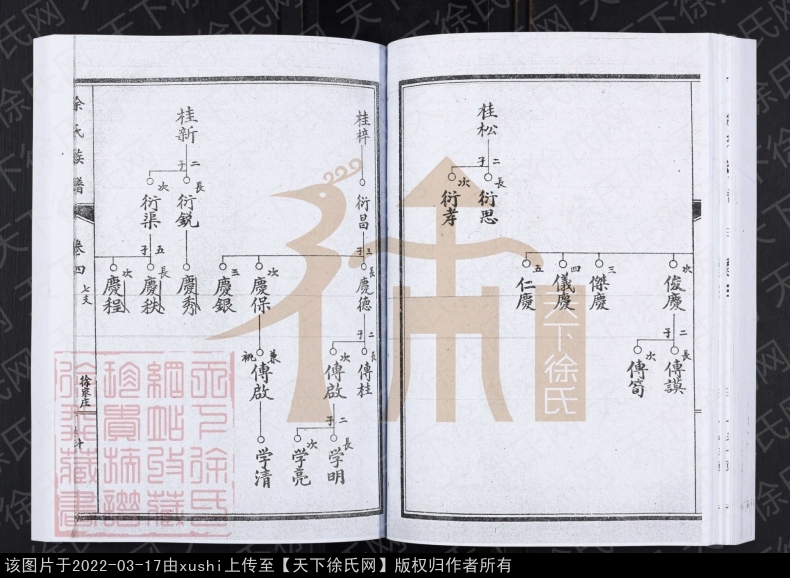 桂松
二子
長 衍思
次 衍孝
次 慶俊
三 慶傑
四 慶儀
五 慶仁
二子
長 傳謨
次 傳筍
桂梓
衍昌
三子
長 慶德
次 慶保
三 慶銀
二子
長 傳柱
次 傳啟
兼祧 傳啟
二子
長 学明
次 学亮
学清
桂新
二子
長 衍銳
次 衍渠
慶秀
五子
長 慶秩
次 慶程
徐氏族譜
卷四
七支
徐泉庄
天下徐氏
天下徐氏网
该图片于2022-03-17由xushi上传至【天下徐氏网】版权归作者所有